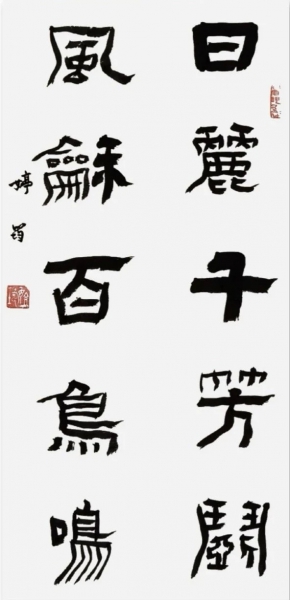 日麗千芳鬪
風龢百鳥鳴
婷